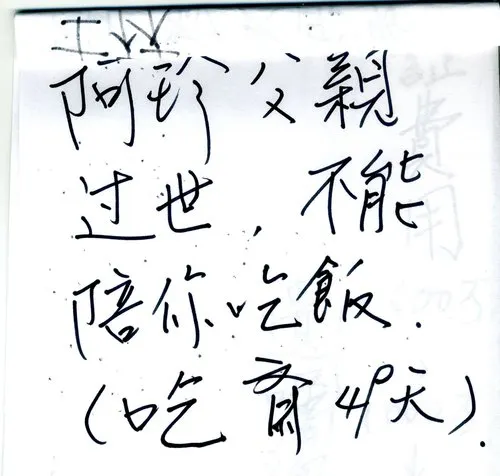 阿珍父親
过世,不能
陪你吃飯.
(吃斎49天).